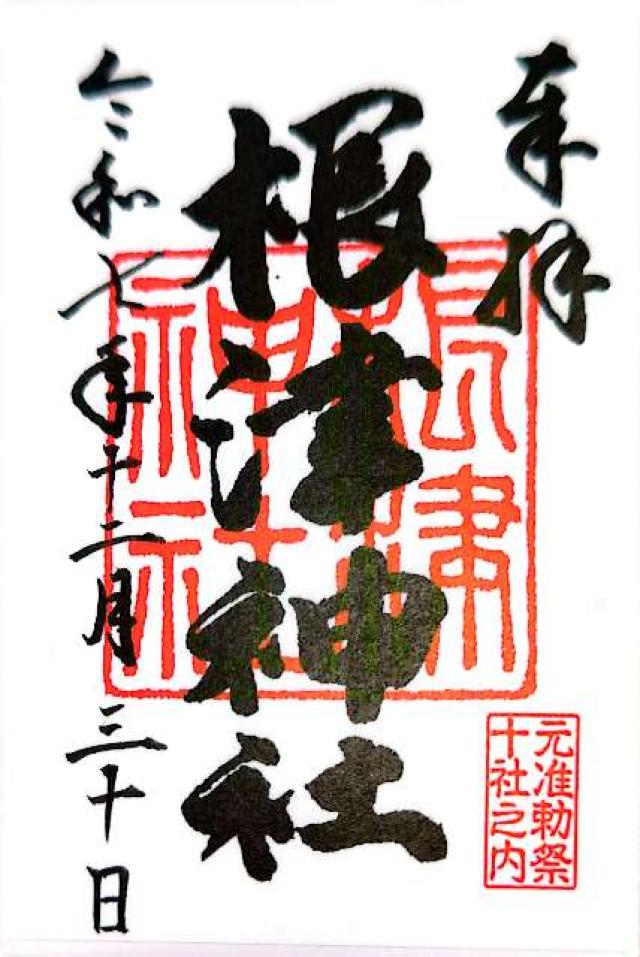 奉拝
根津神社
根津神社
元准勅祭
十社之内
令和七年十二月三十日